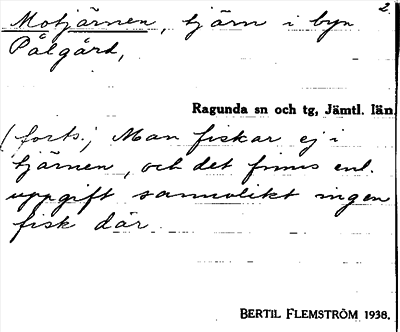 2.
Motjärnen, tjärn i byn
Pålgård,
Ragunda sn och tg, Jämtl. län
(forts.) Man fiskar ej i
tjärnen, och det finns enl.
uppgift sannolikt ingen
fisk där.
BERTIL FLEMSTRÖM 1938.